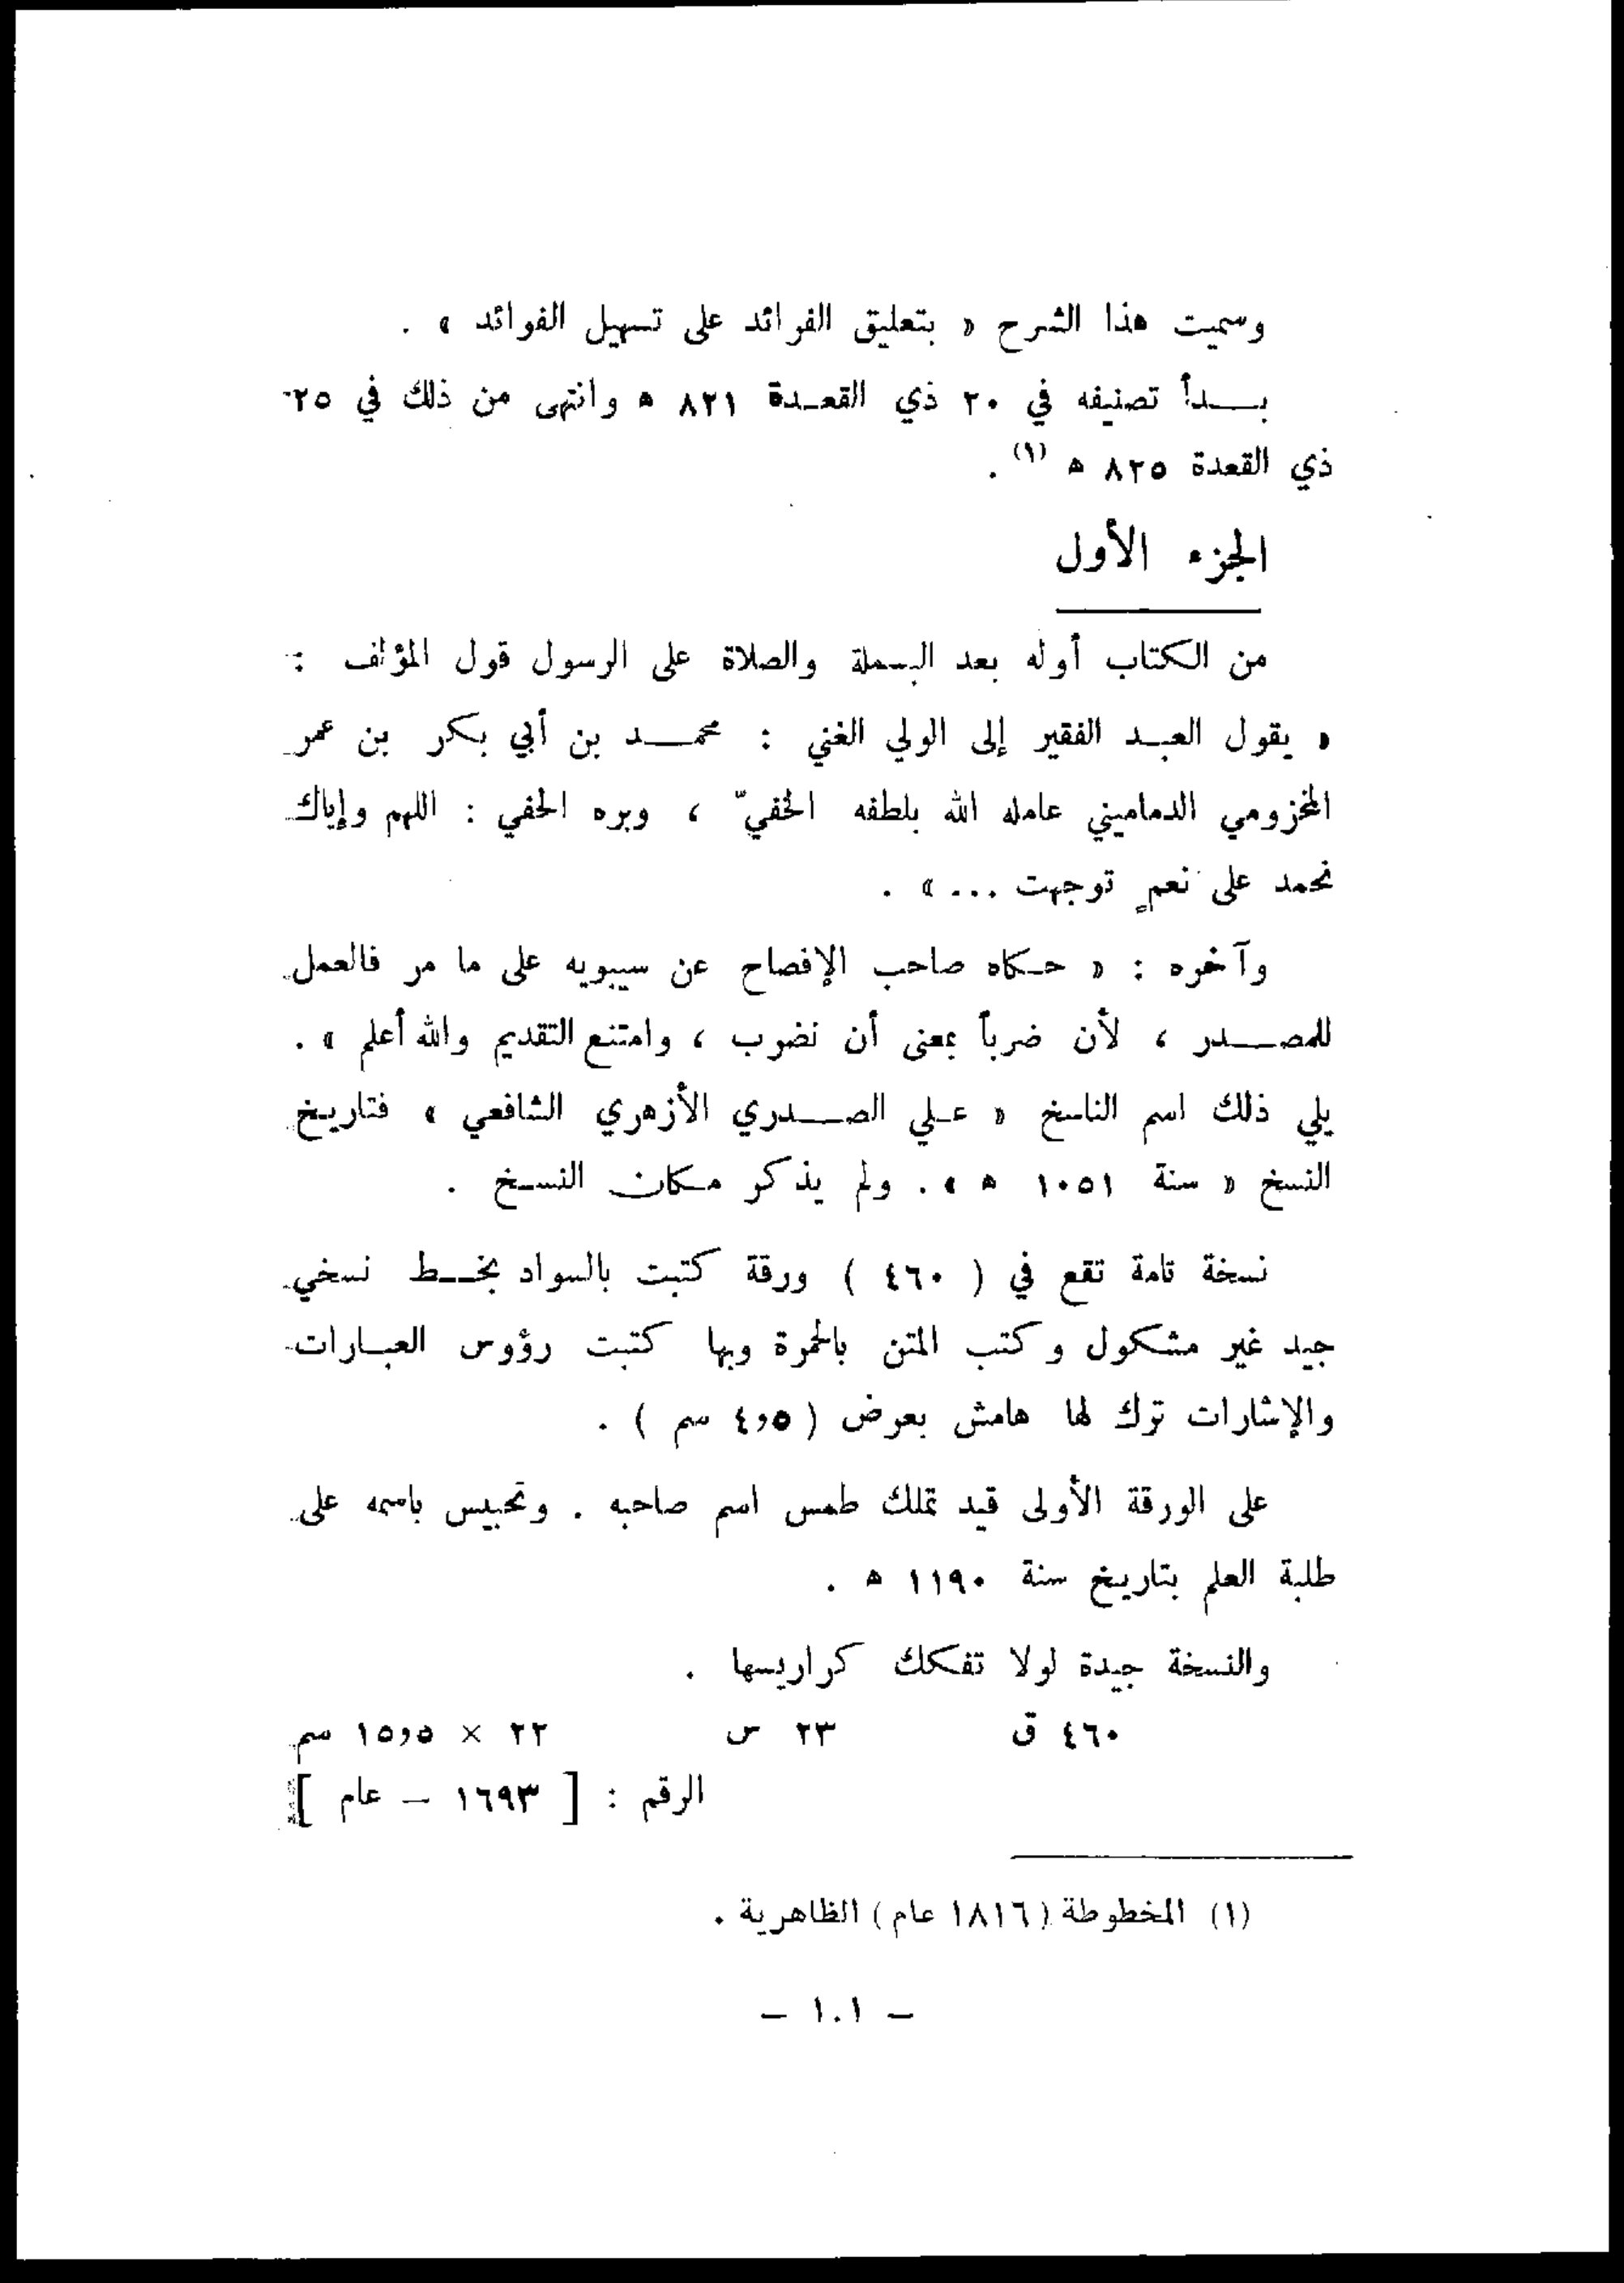 وسميت هذا الشرح « بتعليق الفرائد على تسهيل الفوائد » .
بـــدأ تصنيفه في ٢٠ ذي القعـدة ٨٢١ ه وانتهى من ذلك في ٢٥
ذي القعدة ٨٢٥ ه (١) .
الجزء الأول
من الكتاب أوله بعد البسملة والصلاة على الرسول قول المؤلف :
« يقول العبـد الفقير إلى الولي الغني : محمـــد بن أبي بكر بن عمر
المخزومي الدماميني عامله الله بلطفه الخفيّ ، وبره الحفي : اللهم وإياك
نحمد على نعمٍ توجهت ... » .
وآخره : « حـكاه صاحب الإفصاح عن سيبويه على ما مر فالعمل
للمصـــدر ، لأن ضرباً بمعنى أن نضرب ، وامتنع التقديم والله أعلم » .
يلي ذلك اسم الناسخ « عـلي الصـــدري الأزهري الشافعي » فتاريـخ
النسخ « سنة ١٠٥١ ه » . ولم يذكر مـكان النسـخ .
نسخة تامة تقع في ( ٤٦٠ ) ورقة كتبت بالسواد بخــط نسخي
جيد غير مشكول وكتب المتن بالحمرة وبها كتبت رؤوس العبـارات
والإشارات ترك لها هامش بعرض ( ٤,٥ سم ) .
على الورقة الأولى قيد تملك طمس اسم صاحبه . وتحبيس باسمه على
طلبة العلم بتاريخ سنة ١١٩٠ ه .
والنسخة جيدة لولا تفكك كراريسها .
٤٦٠ ق ٢٣ س ٢٢ × ١٥,٥ سم
الرقم : [ ١٦٩٣ – عام ]
(١) المخطوطة ( ١٨١٦ عام ) الظاهرية .
– ١٠١ –